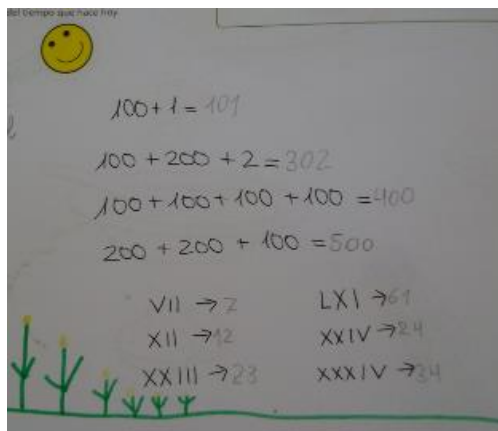 del tiempo que hace hoy
100 + 1 = 101
100 + 200 + 2 = 302
100 + 100 + 100 + 100 = 400
200 + 200 + 100 = 500
VII → 7
XII → 12
XXIII → 23
LXI → 61
XXIV → 24
XXXIV → 34